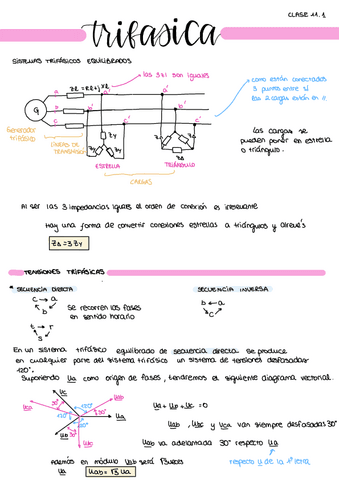 CLASE 11.1
trifasica
SISTEMAS TRIFÁSICOS EQUILIBRADOS
las 3 x1 son iguales
ZL = RL + j XL
A a' a'
B b' b'
C c' c'
G
como están conectados
3 puntos entre sí
las 2 cargas están en //
Generador
trifásico
ZY ZY
ZY
ZΔ ZΔ
ZΔ
ESTRELLA
TRIÁNGULO
CARGAS
las cargas se
pueden poner en estrella
o triángulo.
Al ser las 3 impedancias iguales el orden de conexión es irrelevante
Hay una forma de convertir conexiones estrellas a triángulos y alrevés
ZΔ = 3 ZY
TENSIONES TRIFÁSICAS
* SECUENCIA DIRECTA
SECUENCIA INVERSA
c → a
b
Se recorren las fases
en sentido horario
b ← a
c
t → r
s
En un sistema trifásico equilibrado de secuencia directa se produce
en cualquier parte del sistema trifásico un sistema de tensiones desfasadas
120°.
Suponiendo Ua como origen de fases, tendremos el siguiente diagrama vectorial.
Uc
Uca
Uab
30°
120°
Ua
Ub
Ubc
Ua + Ub + Uc = 0
Uab, Ubc y Uca van siempre desfasadas 30°
Uab va adelantada 30° respecto Ua
respecto U de la 1ª letra
Además en módulo Uab será √3 veces
Ua
Uab = √3 Ua